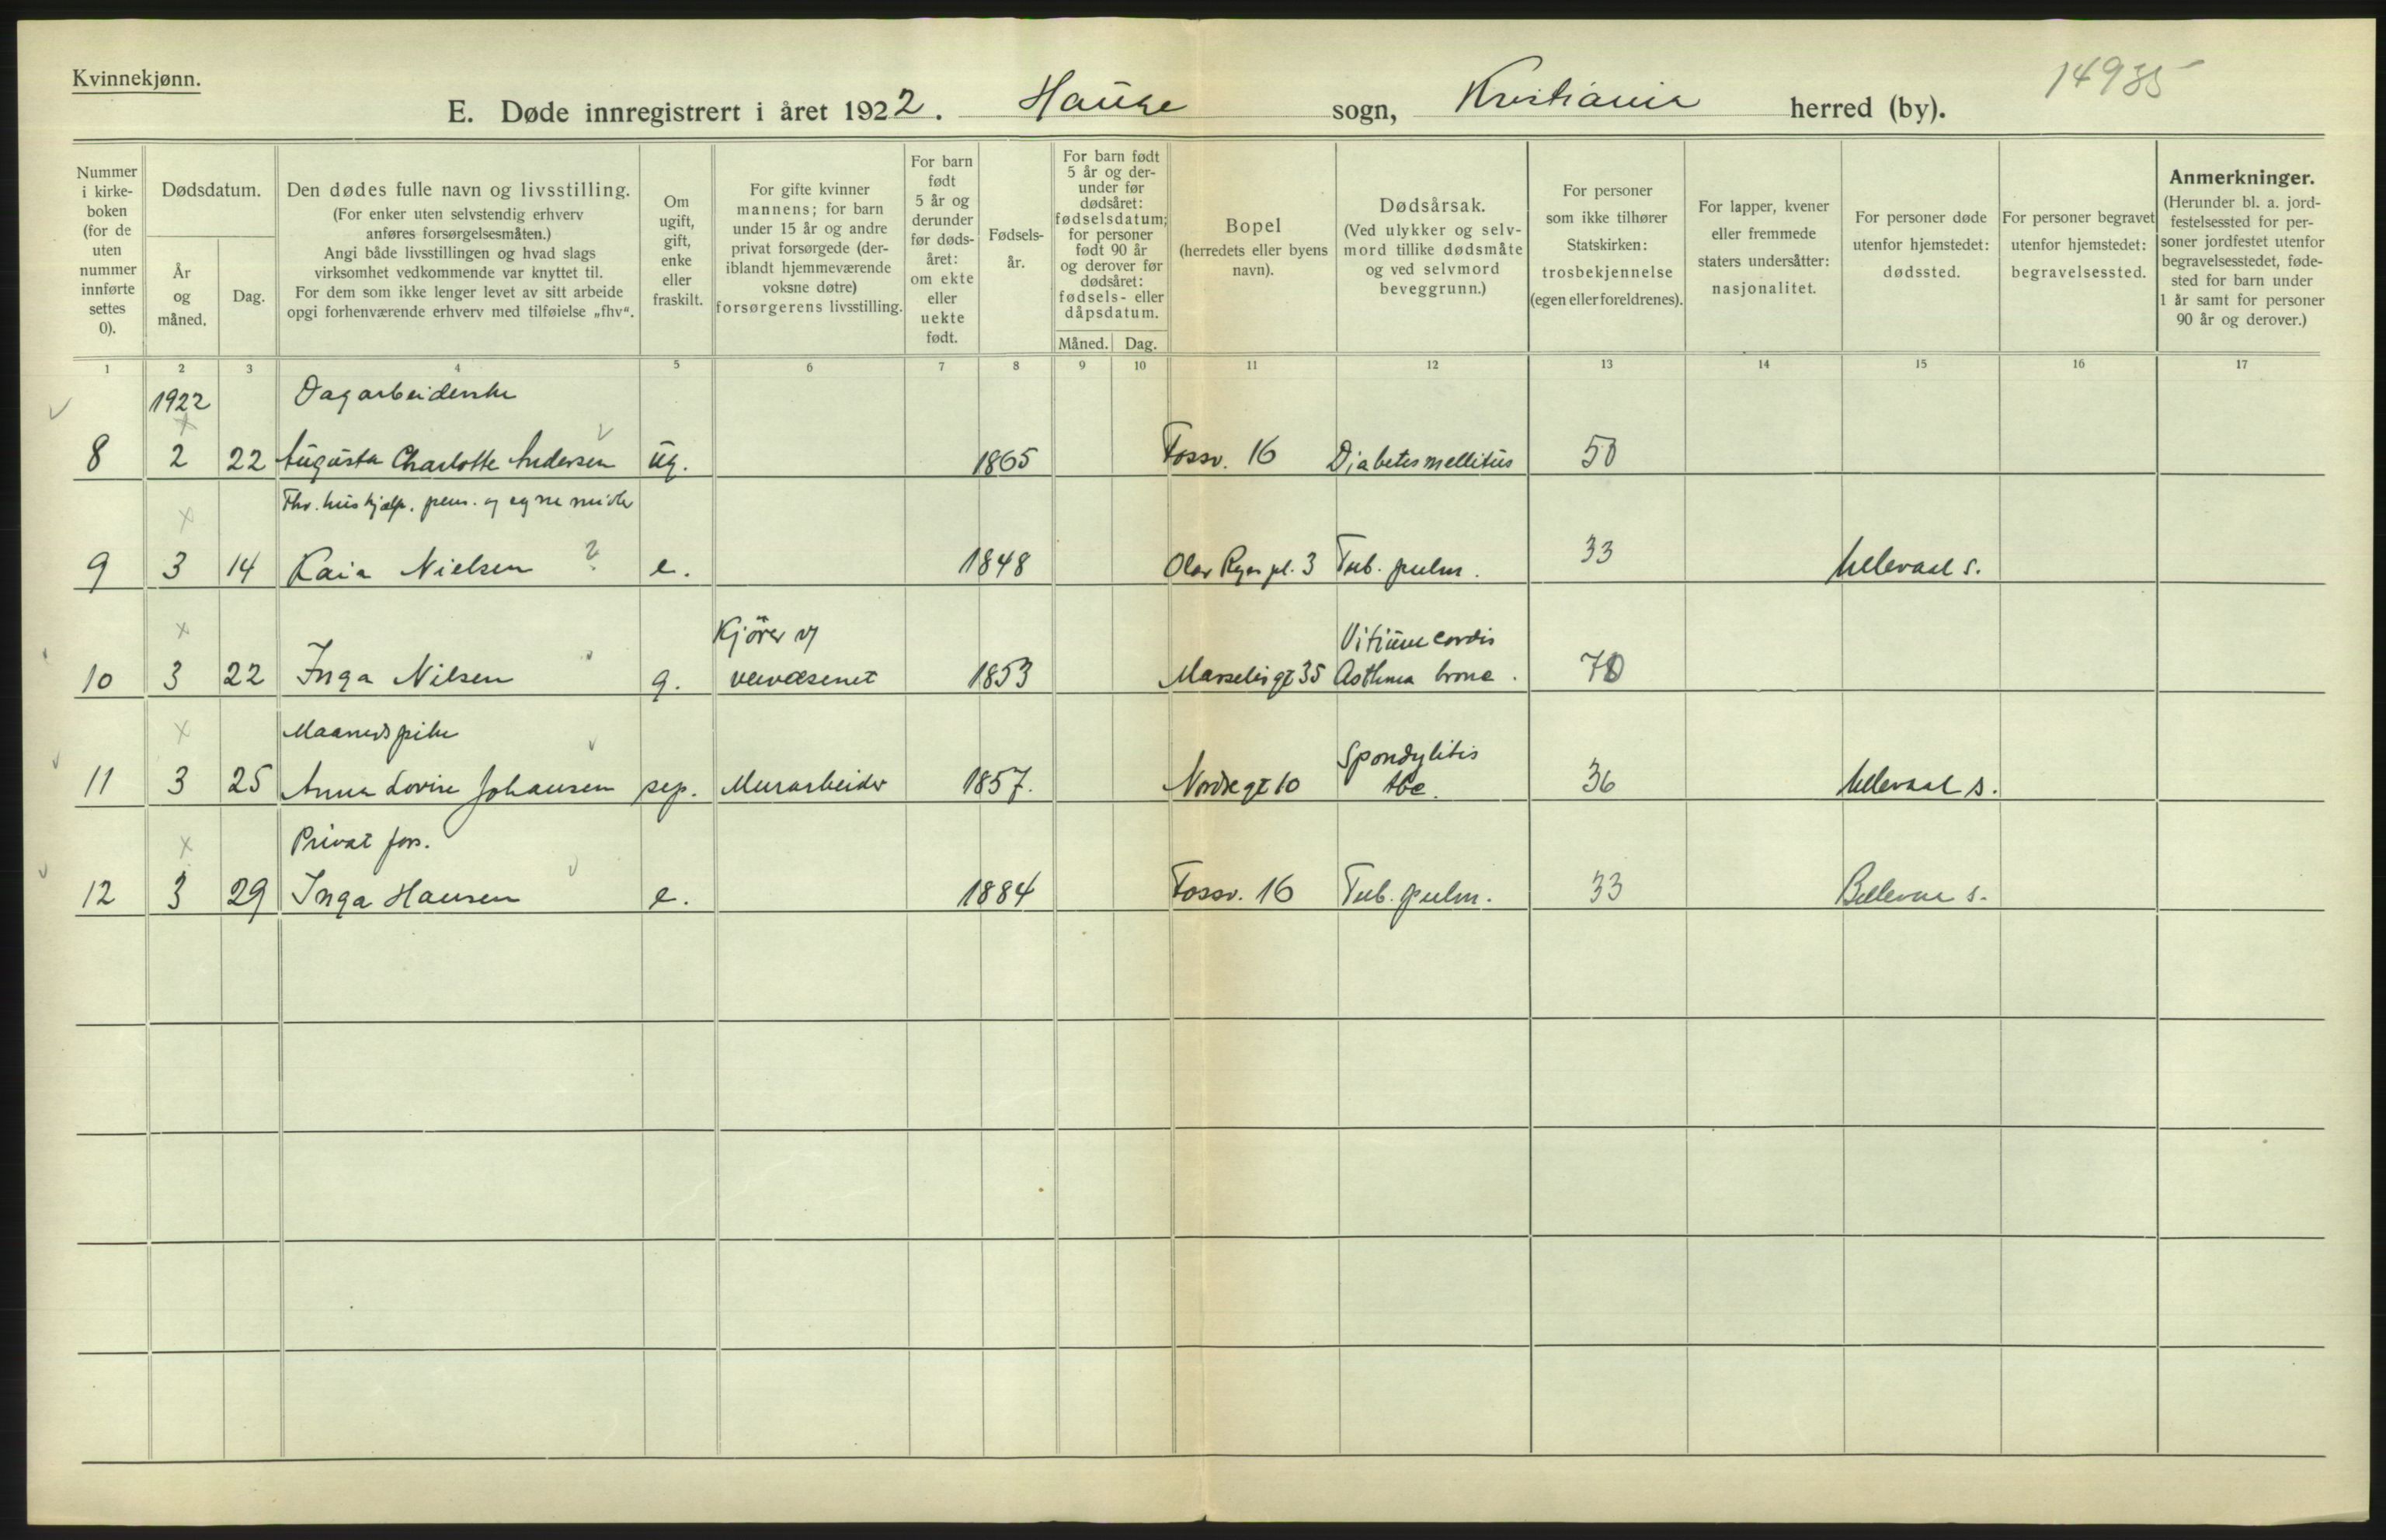 Kvinnekjønn.
14935
E. Døde innregistrert i året 1922. Hauge sogn, Kristiania herred (by).
Nummer i kirke- boken (for de uten nummer innførte settes 0).
Dødsdatum.
År og måned.
Dag.
Den dødes fulle navn og livsstilling.
(For enker uten selvstendig erhverv
anføres forsørgelsesmåten.)
Angi både livsstillingen og hvad slags
virksomhet vedkommende var knyttet til.
For dem som ikke lenger levet av sitt arbeide
opgi forhenværende erhverv med tilføielse „fhv“.
Om
ugift,
gift,
enke
eller
fraskilt.
For gifte kvinner
mannens; for barn
under 15 år og andre
privat forsørgede (der-
iblandt hjemmeværende
voksne døtre)
forsørgerens livsstilling.
For barn
født
5 år og
derunder
før døds-
året:
om ekte
eller
uekte
født.
Fødsels-
år.
For barn født
5 år og der-
under før
dødsåret:
fødselsdatum;
for personer
født 90 år
og derover før
dødsåret:
fødsels- eller
dåpsdatum.
Måned. Dag.
Bopel
(herredets eller byens
navn).
Dødsårsak.
(Ved ulykker og selv-
mord tillike dødsmåte
og ved selvmord
beveggrunn.)
For personer
som ikke tilhører
Statskirken:
trosbekjennelse
(egen eller foreldrenes).
For lapper, kvener
eller fremmede
staters undersåtter:
nasjonalitet.
For personer døde
utenfor hjemstedet:
dødssted.
For personer begravet
utenfor hjemstedet:
begravelsessted.
Anmerkninger.
(Herunder bl. a. jord-
festelsessted for per-
soner jordfestet utenfor
begravelsesstedet, føde-
sted for barn under
1 år samt for personer
90 år og derover.)
1 2 3 4 5 6 7 8 9 10 11 12 13 14 15 16 17
1922 Dagarbeiderske
8 2 22 Augusta Charlotte Andersen ug. 1865 Fossv. 16 Diabetes mellitus 50
Fhv. hushjælp. pens. og egne midler
9 3 14 Kaia Nielsen ? e. 1848 Olav Ryes pl. 3 Tub. pulm. 33 Ullevaal s.
Kjører v/ Vitium cordis
10 3 22 Inga Nilsen g. veivæsenet 1853 Marselis gt 35 Asthma bronc. 70
Maanedspike Spondylitis
11 3 25 Anna Lovise Johansen sep. Murarbeider 1857. Nordregt 10 tbc. 36 Ullevaal s.
Privat fors.
12 3 29 Inga Hansen e. 1884 Fossv. 16 Tub. pulm. 33 Bellevue s.